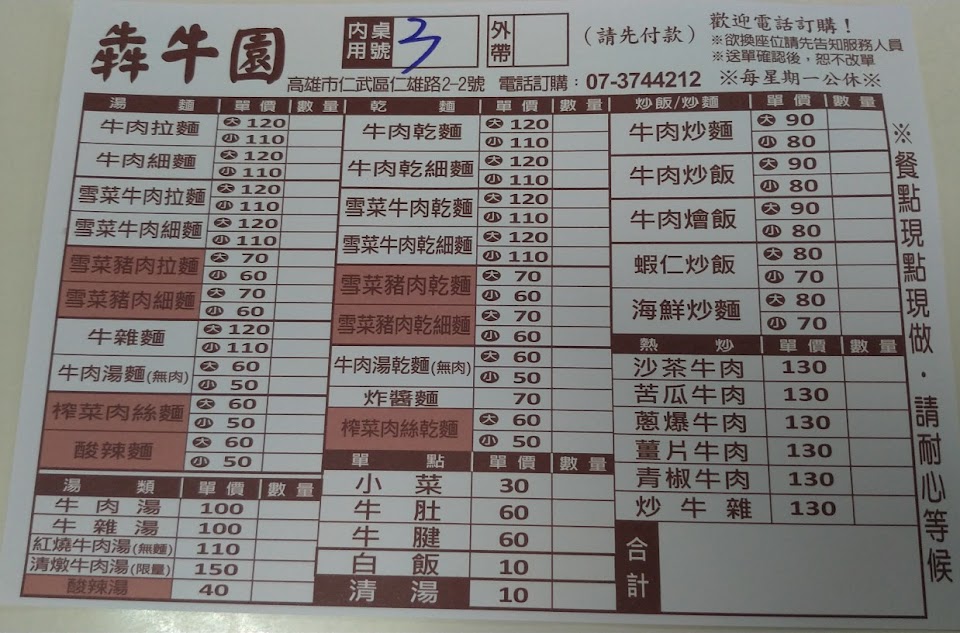 犇牛園
內用 桌號 3 外帶 (請先付款)
歡迎電話訂購！
※欲換座位請先告知服務人員
※送單確認後，恕不改單
高雄市仁武區仁雄路2-2號 電話訂購：07-3744212 ※每星期一公休※
湯 麵 單價 數量
牛肉拉麵 大 120 小 110
牛肉細麵 大 120 小 110
雪菜牛肉拉麵 大 120 小 110
雪菜牛肉細麵 大 120 小 110
雪菜豬肉拉麵 大 70 小 60
雪菜豬肉細麵 大 70 小 60
牛雜麵 大 120 小 110
牛肉湯麵(無肉) 大 60 小 50
榨菜肉絲麵 大 60 小 50
酸辣麵 大 60 小 50
湯 類 單價 數量
牛肉湯 100
牛雜湯 100
紅燒牛肉湯(無麵) 110
清燉牛肉湯(限量) 150
酸辣湯 40
乾 麵 單價 數量
牛肉乾麵 大 120 小 110
牛肉乾細麵 大 120 小 110
雪菜牛肉乾麵 大 120 小 110
雪菜牛肉乾細麵 大 120 小 110
雪菜豬肉乾麵 大 70 小 60
雪菜豬肉乾細麵 大 70 小 60
牛肉湯乾麵(無肉) 大 60 小 50
炸醬麵 70
榨菜肉絲乾麵 大 60 小 50
單 點 單價 數量
小菜 30
牛肚 60
牛腱 60
白飯 10
清湯 10
炒飯/炒麵 單價 數量
牛肉炒麵 大 90 小 80
牛肉炒飯 大 90 小 80
牛肉燴飯 大 90 小 80
蝦仁炒飯 大 80 小 70
海鮮炒麵 大 80 小 70
熱 炒 單價 數量
沙茶牛肉 130
苦瓜牛肉 130
蔥爆牛肉 130
薑片牛肉 130
青椒牛肉 130
炒牛雜 130
合計
※餐點現點現做．請耐心等候